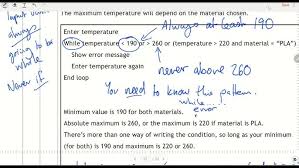 The maximum temperature will depend on the material chosen.
always
going to be
whole
Never if
Enter temperature
Always at least 190
While temperature < 190 or > 260 or (temperature > 220 and material = "PLA")
Show error message
Enter temperature again
End loop
never above 260
You need to know this pattern.
while...
error
Minimum value is 190 for both materials.
Absolute maximum is 260, or the maximum is 220 if material is PLA.
There's more than one way of writing the condition, so long as your minimum
(for both) is 190 and maximum is 220 or 260.